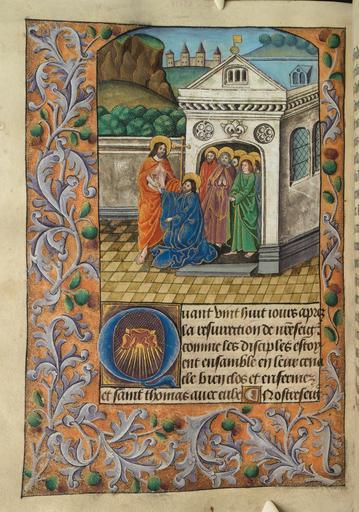 Quant vint huit iours apres
la resurrection de nreseig.
comme les disciples estoy
ent ensamble en leur cena
cle bien clos et enfermez
et saint thomas auec eulx Nostreseig